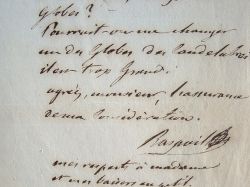 Globes?
Pourrait-on me changer
un des Globes des Candelabres
il est trop Grand.
agréez, monsieur, l'assurance
de ma Considération.
Raspail
mes respects à madame
et mes baisers au petit